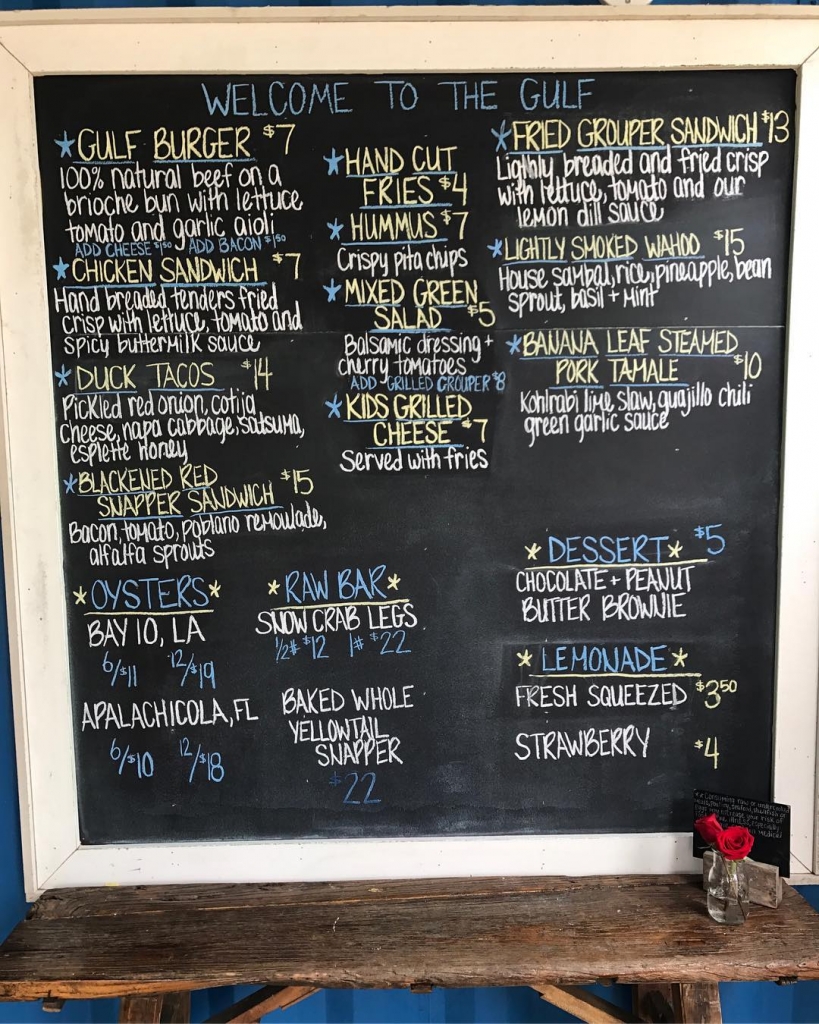 WELCOME TO THE GULF
*GULF BURGER $7
100% natural beef on a
brioche bun with lettuce
tomato and garlic aioli
ADD CHEESE $1.50 ADD BACON $1.50
*CHICKEN SANDWICH $7
Hand breaded tenders fried
crisp with lettuce, tomato and
spicy buttermilk sauce
*DUCK TACOS $14
Pickled red onion, cotija
cheese, napa cabbage, satsuma,
esplette honey
*BLACKENED RED
SNAPPER SANDWICH $15
Bacon, tomato, poblano remoulade,
alfalfa sprouts
*HAND CUT
FRIES $4
*HUMMUS $7
Crispy pita chips
*MIXED GREEN
SALAD $5
Balsamic dressing +
cherry tomatoes
ADD GRILLED GROUPER $8
*KIDS GRILLED
CHEESE $7
Served with fries
*FRIED GROUPER SANDWICH $13
Lightly breaded and fried crisp
with lettuce, tomato and our
lemon dill sauce
*LIGHTLY SMOKED WAHOO $15
House sambal, rice, pineapple, bean
sprout, basil + mint
*BANANA LEAF STEAMED
PORK TAMALE $10
Kohlrabi lime slaw, guajillo chili
green garlic sauce
*OYSTERS*
BAY 10, LA
6/$11 12/$19
APALACHICOLA, FL
6/$10 12/$18
*RAW BAR*
SNOW CRAB LEGS
1/2# $12 1# $22
BAKED WHOLE
YELLOWTAIL
SNAPPER
$22
*DESSERT* $5
CHOCOLATE + PEANUT
BUTTER BROWNIE
*LEMONADE*
FRESH SQUEEZED $3.50
STRAWBERRY $4